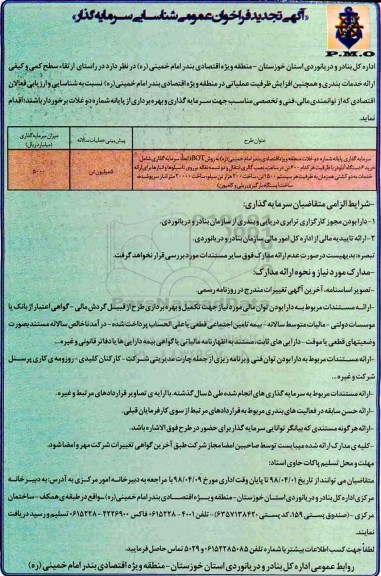 «آگهی تجدید فراخوان عمومی شناسایی سرمایه گذار»
P.M.O
اداره کل بنادر و دریانوردی استان خوزستان - منطقه ویژه اقتصادی بندر امام خمینی (ره) در نظر دارد در راستای ارتقاء سطح کمی و کیفی
ارائه خدمات بندری و همچنین افزایش ظرفیت عملیاتی در منطقه ویژه اقتصادی بندر امام خمینی (ره) نسبت به شناسایی و ارزیابی فعالان
اقتصادی که از توانمندی مالی، فنی و تخصصی مناسب جهت سرمایه گذاری و بهره برداری از پایانه شماره دو غلات برخوردار باشند؛ اقدام
نماید.
عنوان طرح
پیش بینی عملیات سالانه
میزان سرمایه گذاری (میلیارد ریال)
سرمایه گذاری پایانه شماره دو غلات منطقه ویژه اقتصادی بندر امام خمینی (ره) به روش BOT
۵ میلیون تن
۵۰۰۰
-شرایط الزامی متقاضیان سرمایه گذاری:
۱- دارا بودن مجوز کارگزاری ترابری دریایی و بندری از سازمان بنادر و دریانوردی.
۲- ارائه تاییدیه مالی از اداره کل امور مالی سازمان بنادر و دریانوردی.
تبصره: بدیهیست در صورت عدم ارائه مدارک فوق سایر مستندات مورد بررسی قرار نخواهد گرفت.
-مدارک مورد نیاز و نحوه ارائه مدارک:
-تصویر اساسنامه، آخرین آگهی تغییرات مندرج در روزنامه رسمی.
-ارائه مستندات مربوط به دارا بودن توان مالی مورد نیاز جهت تکمیل و بهره برداری طرح از قبیل گردش مالی - گواهی اعتبار از بانک یا
موسسات دولتی - مالیات متوسط سالانه - بیمه تامین اجتماعی قطعی یا علی الحساب پرداخت شده - درآمد ناخالص سالانه مستند بصورت
وضعیتهای قطعی یا موقت - دارایی های ثابت، مستند به اظهارنامه مالیاتی یا گواهی بیمه دارایی ها یا دفاتر قانونی و غیره...
-ارائه مستندات مربوط به دارا بودن توان فنی و برنامه ریزی از جمله چارت مدیریتی شرکت - کارکنان کلیدی - رزومه ی کاری پرسنل
شرکت و غیره...
-ارائه مستندات مربوط به سرمایه گذاری های انجام شده طی ۵ سال گذشته با ارایه ی تصاویر قراردادهای مرتبط و غیره.
-ارائه حسن سابقه در فعالیت های بندری مربوط به قراردادهای مرتبط از سوی کارفرمایان قبلی.
-ارائه هرگونه مستندی که بیانگر توانایی سرمایه گذار برای حضور در طرح فوق الاشاره باشد.
-کلیه ی مدارک ارائه شده میبایست توسط صاحبین امضا مجاز شرکت طبق آخرین گواهی تغییرات شرکت مهر و امضا شود.
مهلت و محل تسلیم پاکات حاوی اسناد:
متقاضیان می توانند از تاریخ ۹۸/۰۴/۰۱ تا پایان وقت اداری مورخ ۹۸/۰۴/۰۹ با مراجعه به دبیرخانه امور مرکزی به آدرس: به دبیرخانه
مرکزی اداره کل بنادر و دریانوردی استان خوزستان - منطقه ویژه اقتصادی بندر امام خمینی (ره)، واقع در طبقه ی همکف - ساختمان
مرکزی - (صندوق پستی ۱۵۹، کد پستی ۶۳۵۷۱۳۸۴۲۰) - تلفن ۴۰۰۱ - ۰۶۱۵۲۲۸ فاکس ۲۲۲۶۹۰۰ - ۰۶۱۵۲۲۸ تسلیم و رسید دریافت
نمایند.
لطفاً جهت کسب اطلاعات بیشتر با شماره تلفن ۰۶۱۵۲۲۸۵۰۸۵ و ۵۰۲۹ تماس حاصل فرمایید.
روابط عمومی اداره کل بنادر و دریانوردی استان خوزستان - منطقه ویژه اقتصادی بندر امام خمینی (ره)